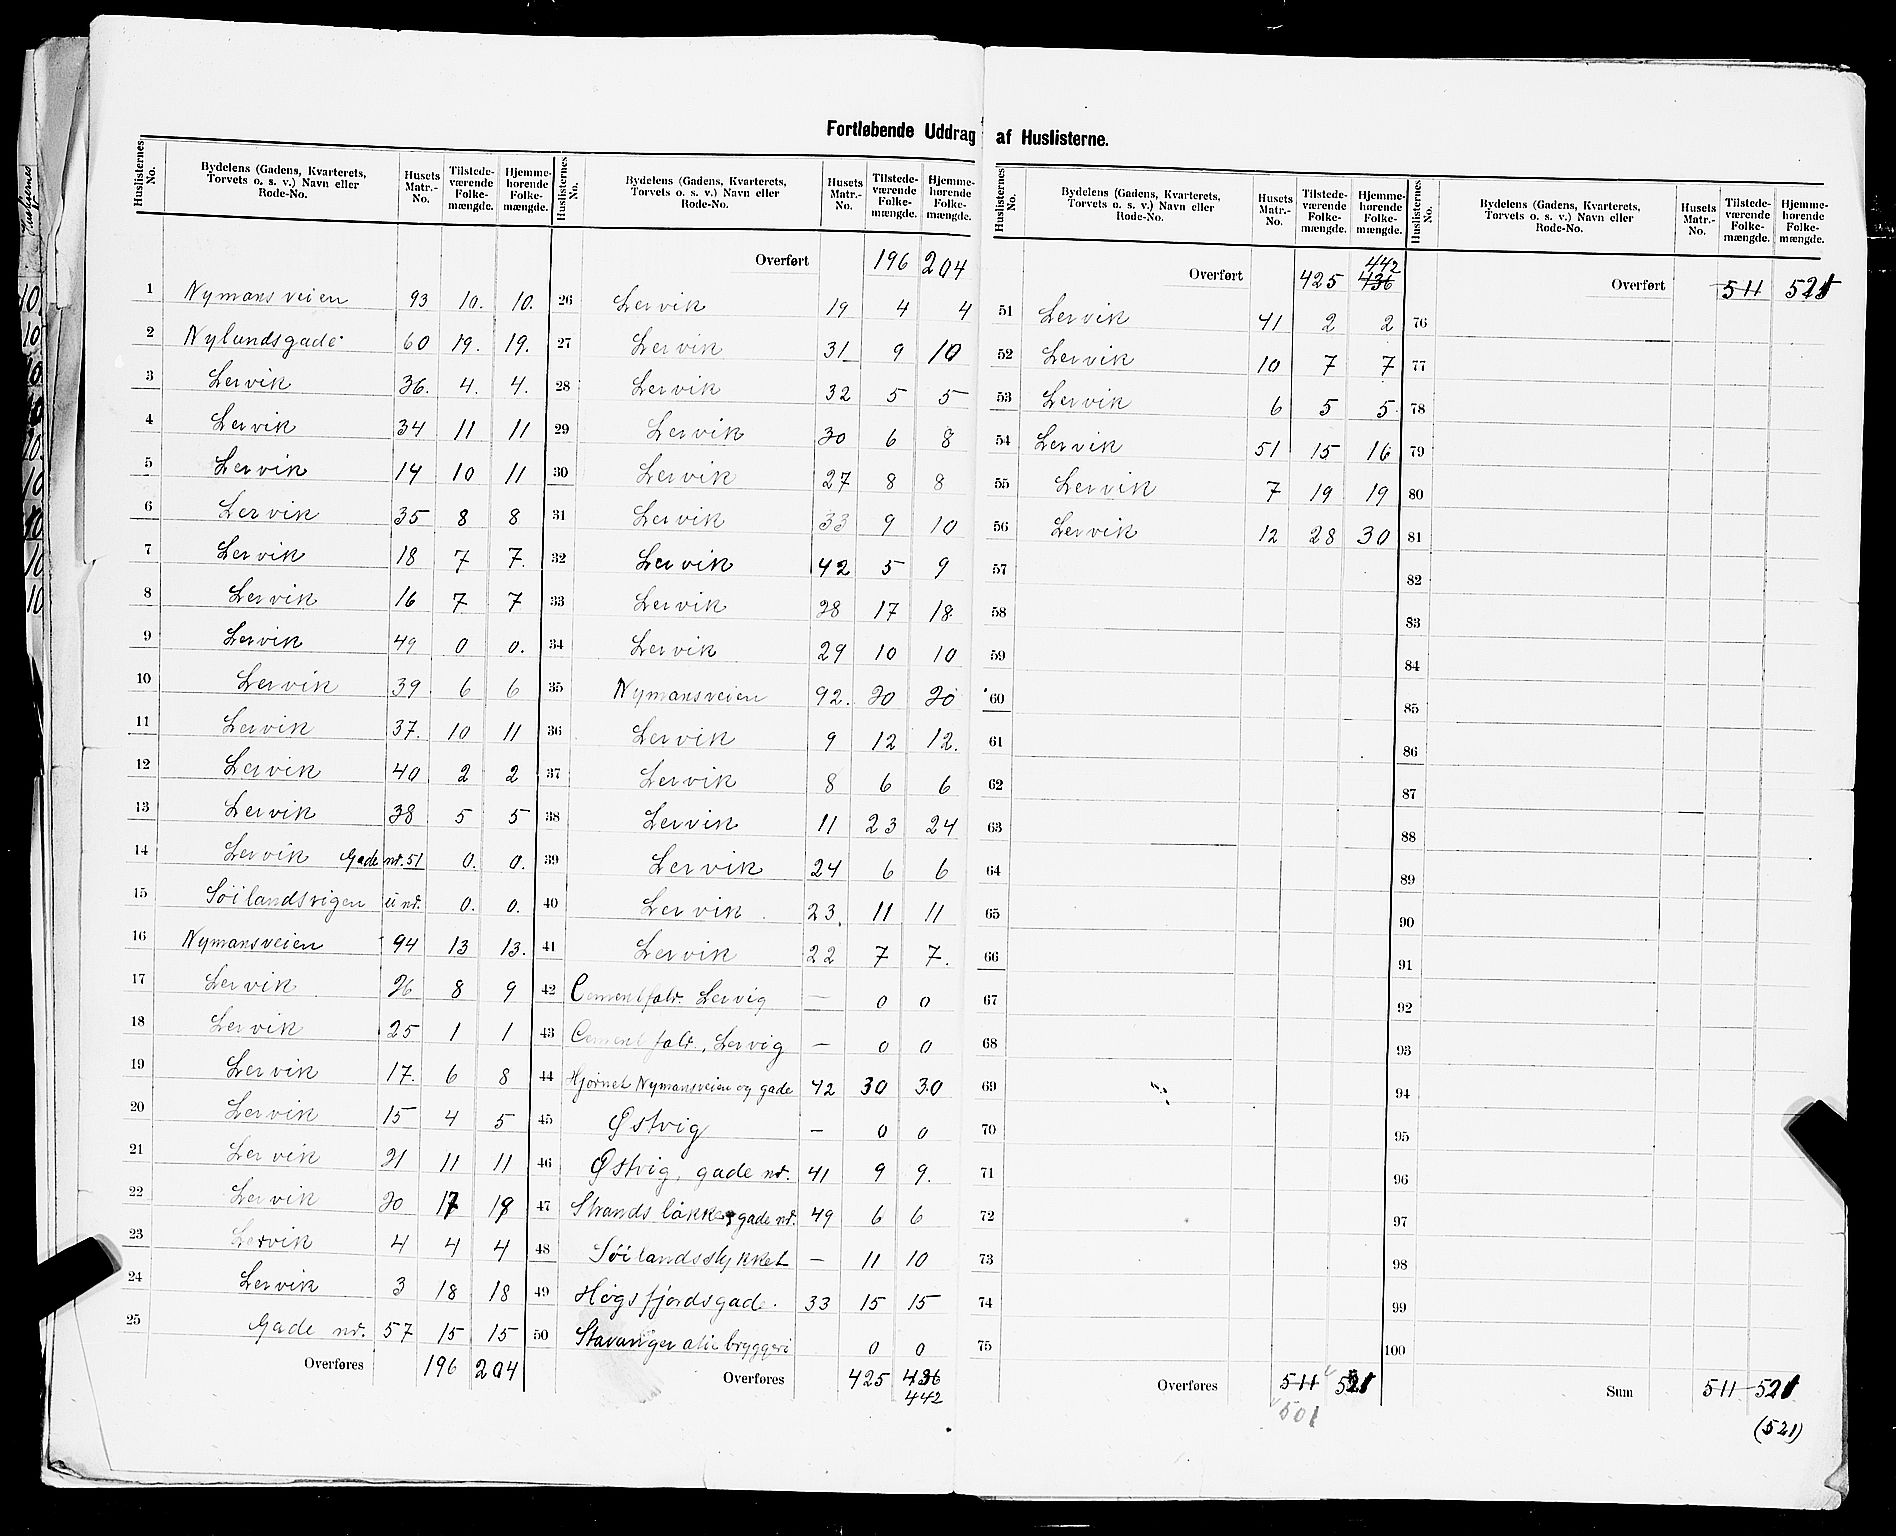 Fortløbende Uddrag af Huslisterne.
Huslisternes No. | Bydelens (Gadens, Kvarterets, Torvets o. s. v.) Navn eller Rode-No. | Husets Matr.-No. | Tilstedeværende Folkemængde. | Hjemmehørende Folkemængde.
1 Nymansveien 93 10. 10.
2 Nylundsgade 60 19. 19.
3 Lervik 36. 4. 4.
4 Lervik 34 11 11
5 Lervik 14 10 11
6 Lervik 35 8 8
7 Lervik 18 7 7.
8 Lervik 16 7 7
9 Lervik 49 0 0.
10 Lervik 39 6 6
11 Lervik 37. 10 11
12 Lervik 40 2 2
13 Lervik 38 5 5
14 Lervik Gade nr. 51 0. 0.
15 Söilandsvigen u nr. 0. 0.
16 Nymansveien 94 13 13.
17 Lervik 26 8 9
18 Lervik 25 1 1
19 Lervik 17. 6 8
20 Lervik 15 4 5
21 Lervik 21 11 11
22 Lervik 20 17 19
23 Lervik 4 4 4
24 Lervik 3 18 18
25 Gade nr. 57 15 15
Overføres 196 204
Huslisternes No. | Bydelens (Gadens, Kvarterets, Torvets o. s. v.) Navn eller Rode-No. | Husets Matr.-No. | Tilstedeværende Folkemængde. | Hjemmehørende Folkemængde.
Overført 196 204
26 Lervik 19 4 4
27 Lervik 31 9 10
28 Lervik 32 5 5
29 Lervik 30 6 8
30 Lervik 27 8 8
31 Lervik 33 9 10
32 Lervik 42 5 9
33 Lervik 28 17 18
34 Lervik 29 10 10
35 Nymansveien 92. 20 20
36 Lervik 9 12 12.
37 Lervik 8 6 6
38 Lervik 11 23 24
39 Lervik 24 6 6
40 Lervik 23. 11 11
41 Lervik 22 7 7.
42 Cementfabr. Lervig — 0 0
43 Cementfabr., Lervig — 0 0
44 Hjørnet Nymansveien og gade 42 30 30
45 Østvig — 0 0
46 Østvig, gade nr. 41 9 9.
47 Strandsløkke gade nr. 49 6 6
48 Söilandsstykket — 11 10
49 Høgsfjordsgade. 33 15 15
50 Stavanger øllebryggeri 0 0
Overføres 425 436
442
Huslisternes No. | Bydelens (Gadens, Kvarterets, Torvets o. s. v.) Navn eller Rode-No. | Husets Matr.-No. | Tilstedeværende Folkemængde. | Hjemmehørende Folkemængde.
442
Overført 425 436
51 Lervik 41 2 2
52 Lervik 10 7 7
53 Lervik 6 5 5.
54 Lervik 51 15 16
55 Lervik 7 19 19
56 Lervik 12 28 30
57
58
59
60
61
62
63
64
65
66
67
68
69
70
71
72
73
74
75
Overføres 511 521
501
Huslisternes No. | Bydelens (Gadens, Kvarterets, Torvets o. s. v.) Navn eller Rode-No. | Husets Matr.-No. | Tilstedeværende Folkemængde. | Hjemmehørende Folkemængde.
Overført 511 521
76
77
78
79
80
81
82
83
84
85
86
87
88
89
90
91
92
93
94
95
96
97
98
99
100
Sum 511 521
(521)